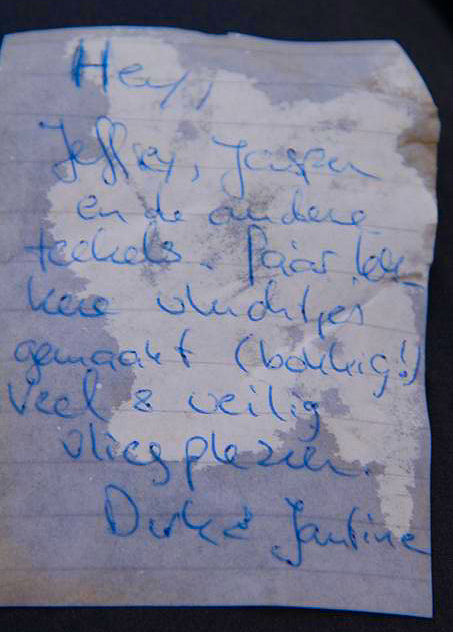 Hey,
Jeffrey, Jasper
en de andere
teckels. Paar lek
kere vluchtjes
gemaakt (bokkig!)
Veel & veilig
vliegplezier.
Dirk & Jantine